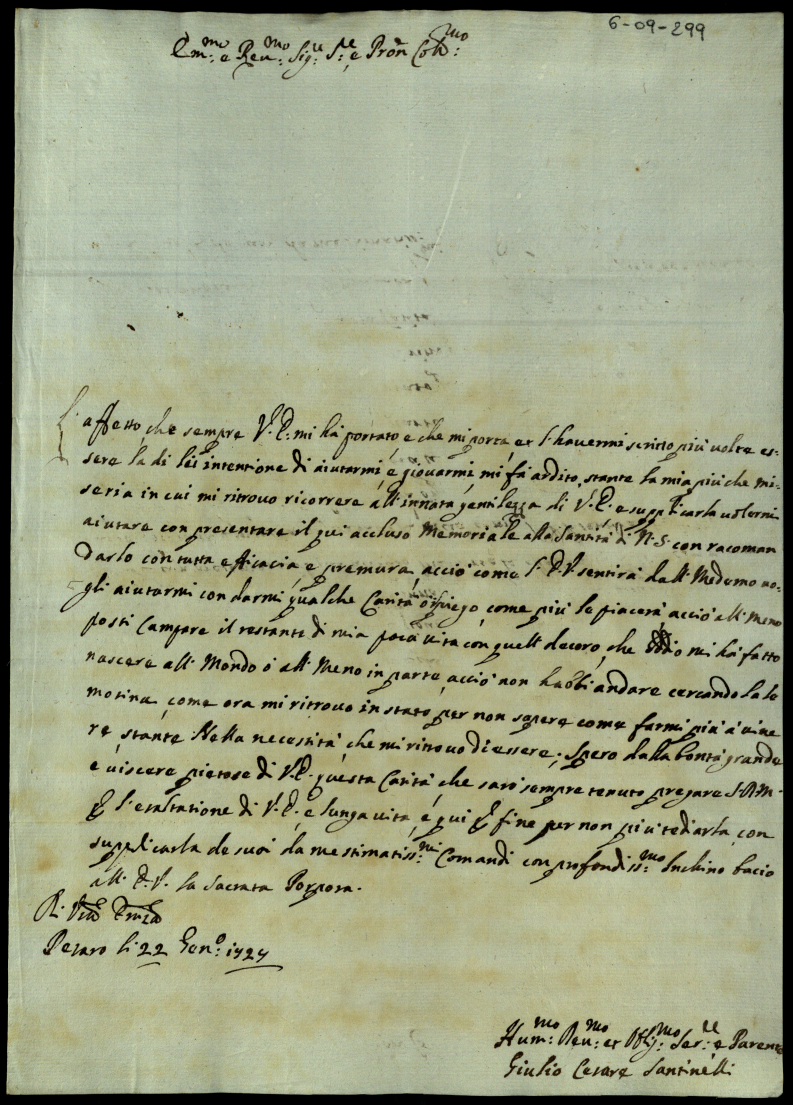 6-09-299
Em:mo e Reu:mo Sig:re S:re e Pron Col:mo
L'affetto, che sempre V.E. mi hà portato e che mi porta, et l'hauermi scritto più volte es-
sere la di lei intentione di aiutarmi e giouarmi mi fà ardito, stante la mia più che mi-
seria in cui mi ritrouo ricorrere all'innata gentilezza di V.E. e supplicarla uolermi
aiutare con presentare il qui accluso Memoriale alla Santità di N.S. con racoman
darlo con tutta efficacia e premura, acciò come l'E.V. sentirà dall Medemo uo-
gli aiutarmi con darmi qualche Carità ò impiego come più le piacerà, acciò all meno
possi Campare il restante di mia poca uita con quell decoro, che Iddio mi hà fatto
nascere all Mondo ò all Meno in parte, acciò non habbi andare cercando la le
mosina, come ora mi ritrouo in stato, per non sapere come farmi più à uiue
re stante Nella necessità che mi ritrouo di essere. Spero dalla bontà grande
e uiscere pietose di V.E. questa Carità che sarò sempre tenuto pregare S.D.M.
per l'esaltatione di V.E. e lunga uita e qui per fine per non più tediarla con
supplicarla de suoi da me stimatiss:mi Comandi con profondiss:mo Inchino bacio
all E.V. la Sacrata Porpora.
Di V:ra Em:za
Pesaro li 22 Gen:o 1727
Hum:mo Deu:mo et Obli:mo Ser:re e Parente
Giulio Cesare Santinelli